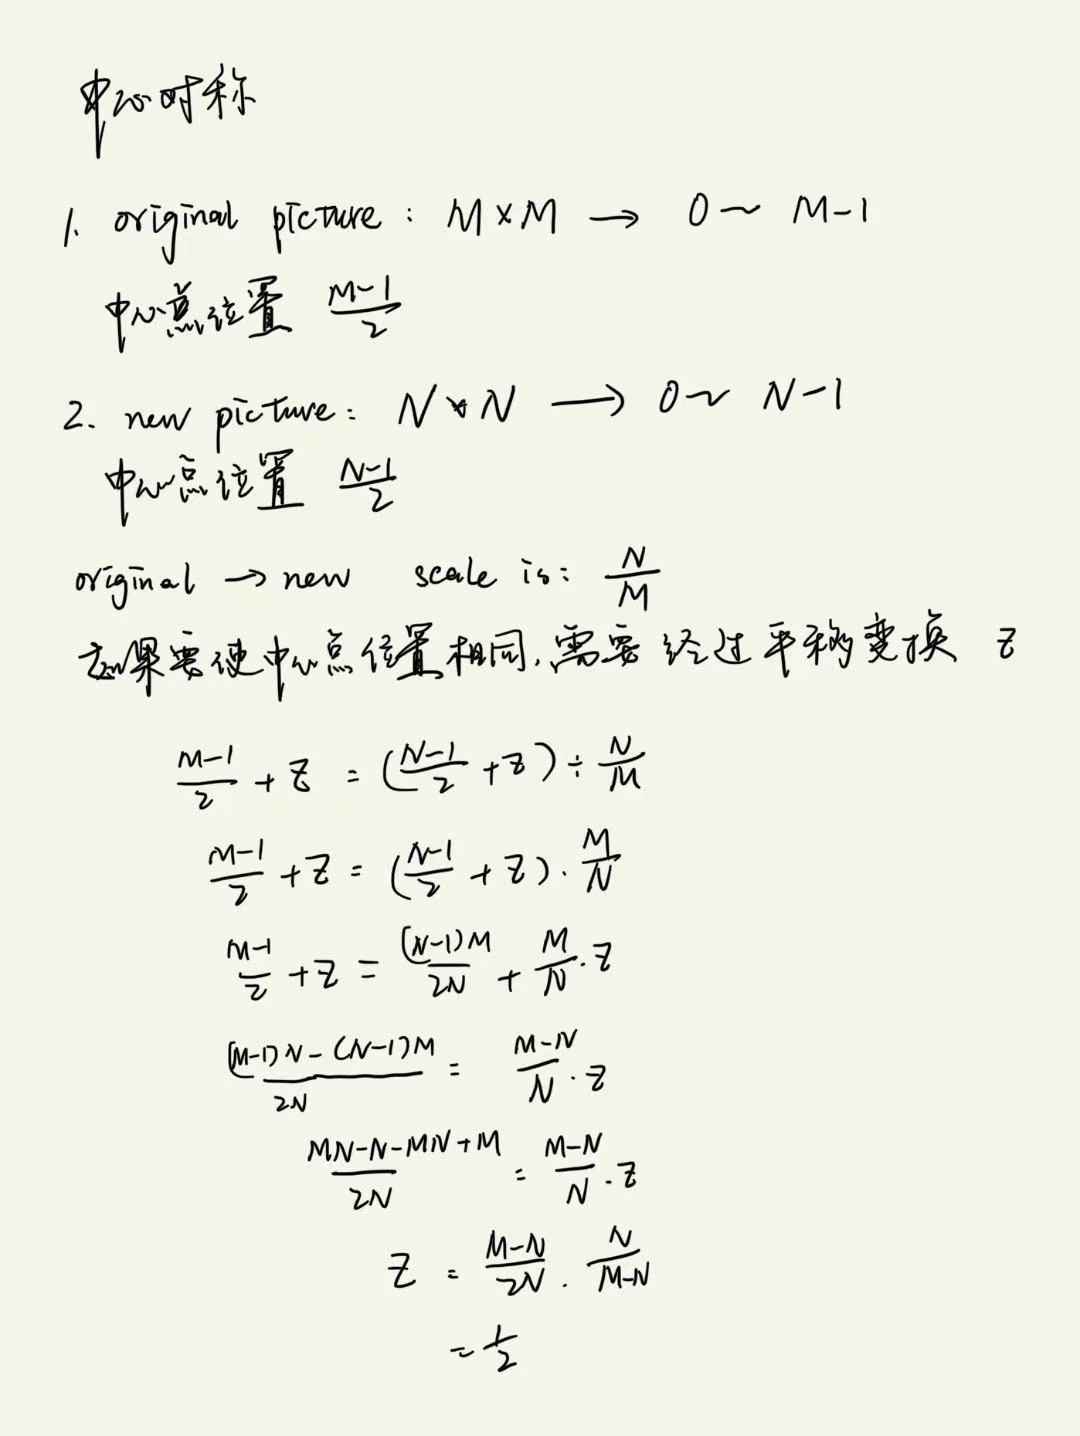 中心对称
1. original picture: M×M → 0～ M-1
中心点位置 \frac{M-1}{2}
2. new picture: N×N → 0～ N-1
中心点位置 \frac{N-1}{2}
original → new scale is: \frac{N}{M}
如果要使中心点位置相同,需要经过平移变换 Z
\frac{M-1}{2} + Z = (\frac{N-1}{2} + Z) ÷ \frac{N}{M}
\frac{M-1}{2} + Z = (\frac{N-1}{2} + Z) · \frac{M}{N}
\frac{M-1}{2} + Z = \frac{(N-1)M}{2N} + \frac{M}{N} · Z
\frac{(M-1)N-(N-1)M}{2N} = \frac{M-N}{N} · Z
\frac{MN-N-MN+M}{2N} = \frac{M-N}{N} · Z
Z = \frac{M-N}{2N} · \frac{N}{M-N}
= \frac{1}{2}